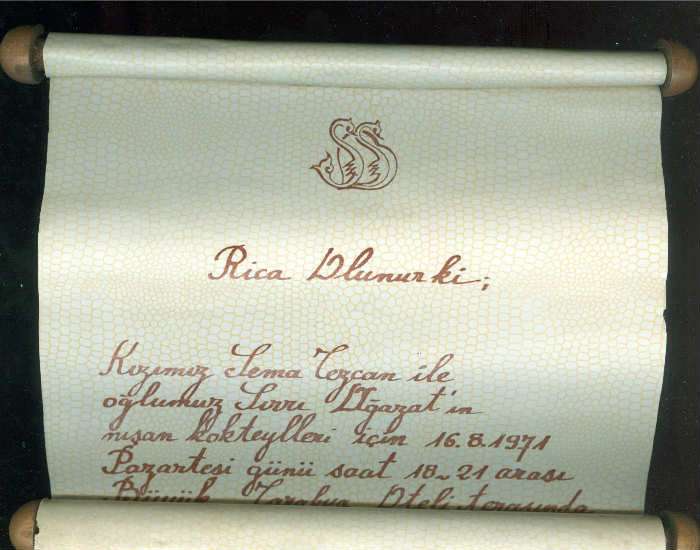 Rica Olunurki;
Kızımız Sema Tezcan ile
oğlumuz Sırrı Oğazat'in
nışan kokteylleri için 16.8.1971
Pazartesi günü saat 18-21 arası
Büyük Tarabya Oteli terasında